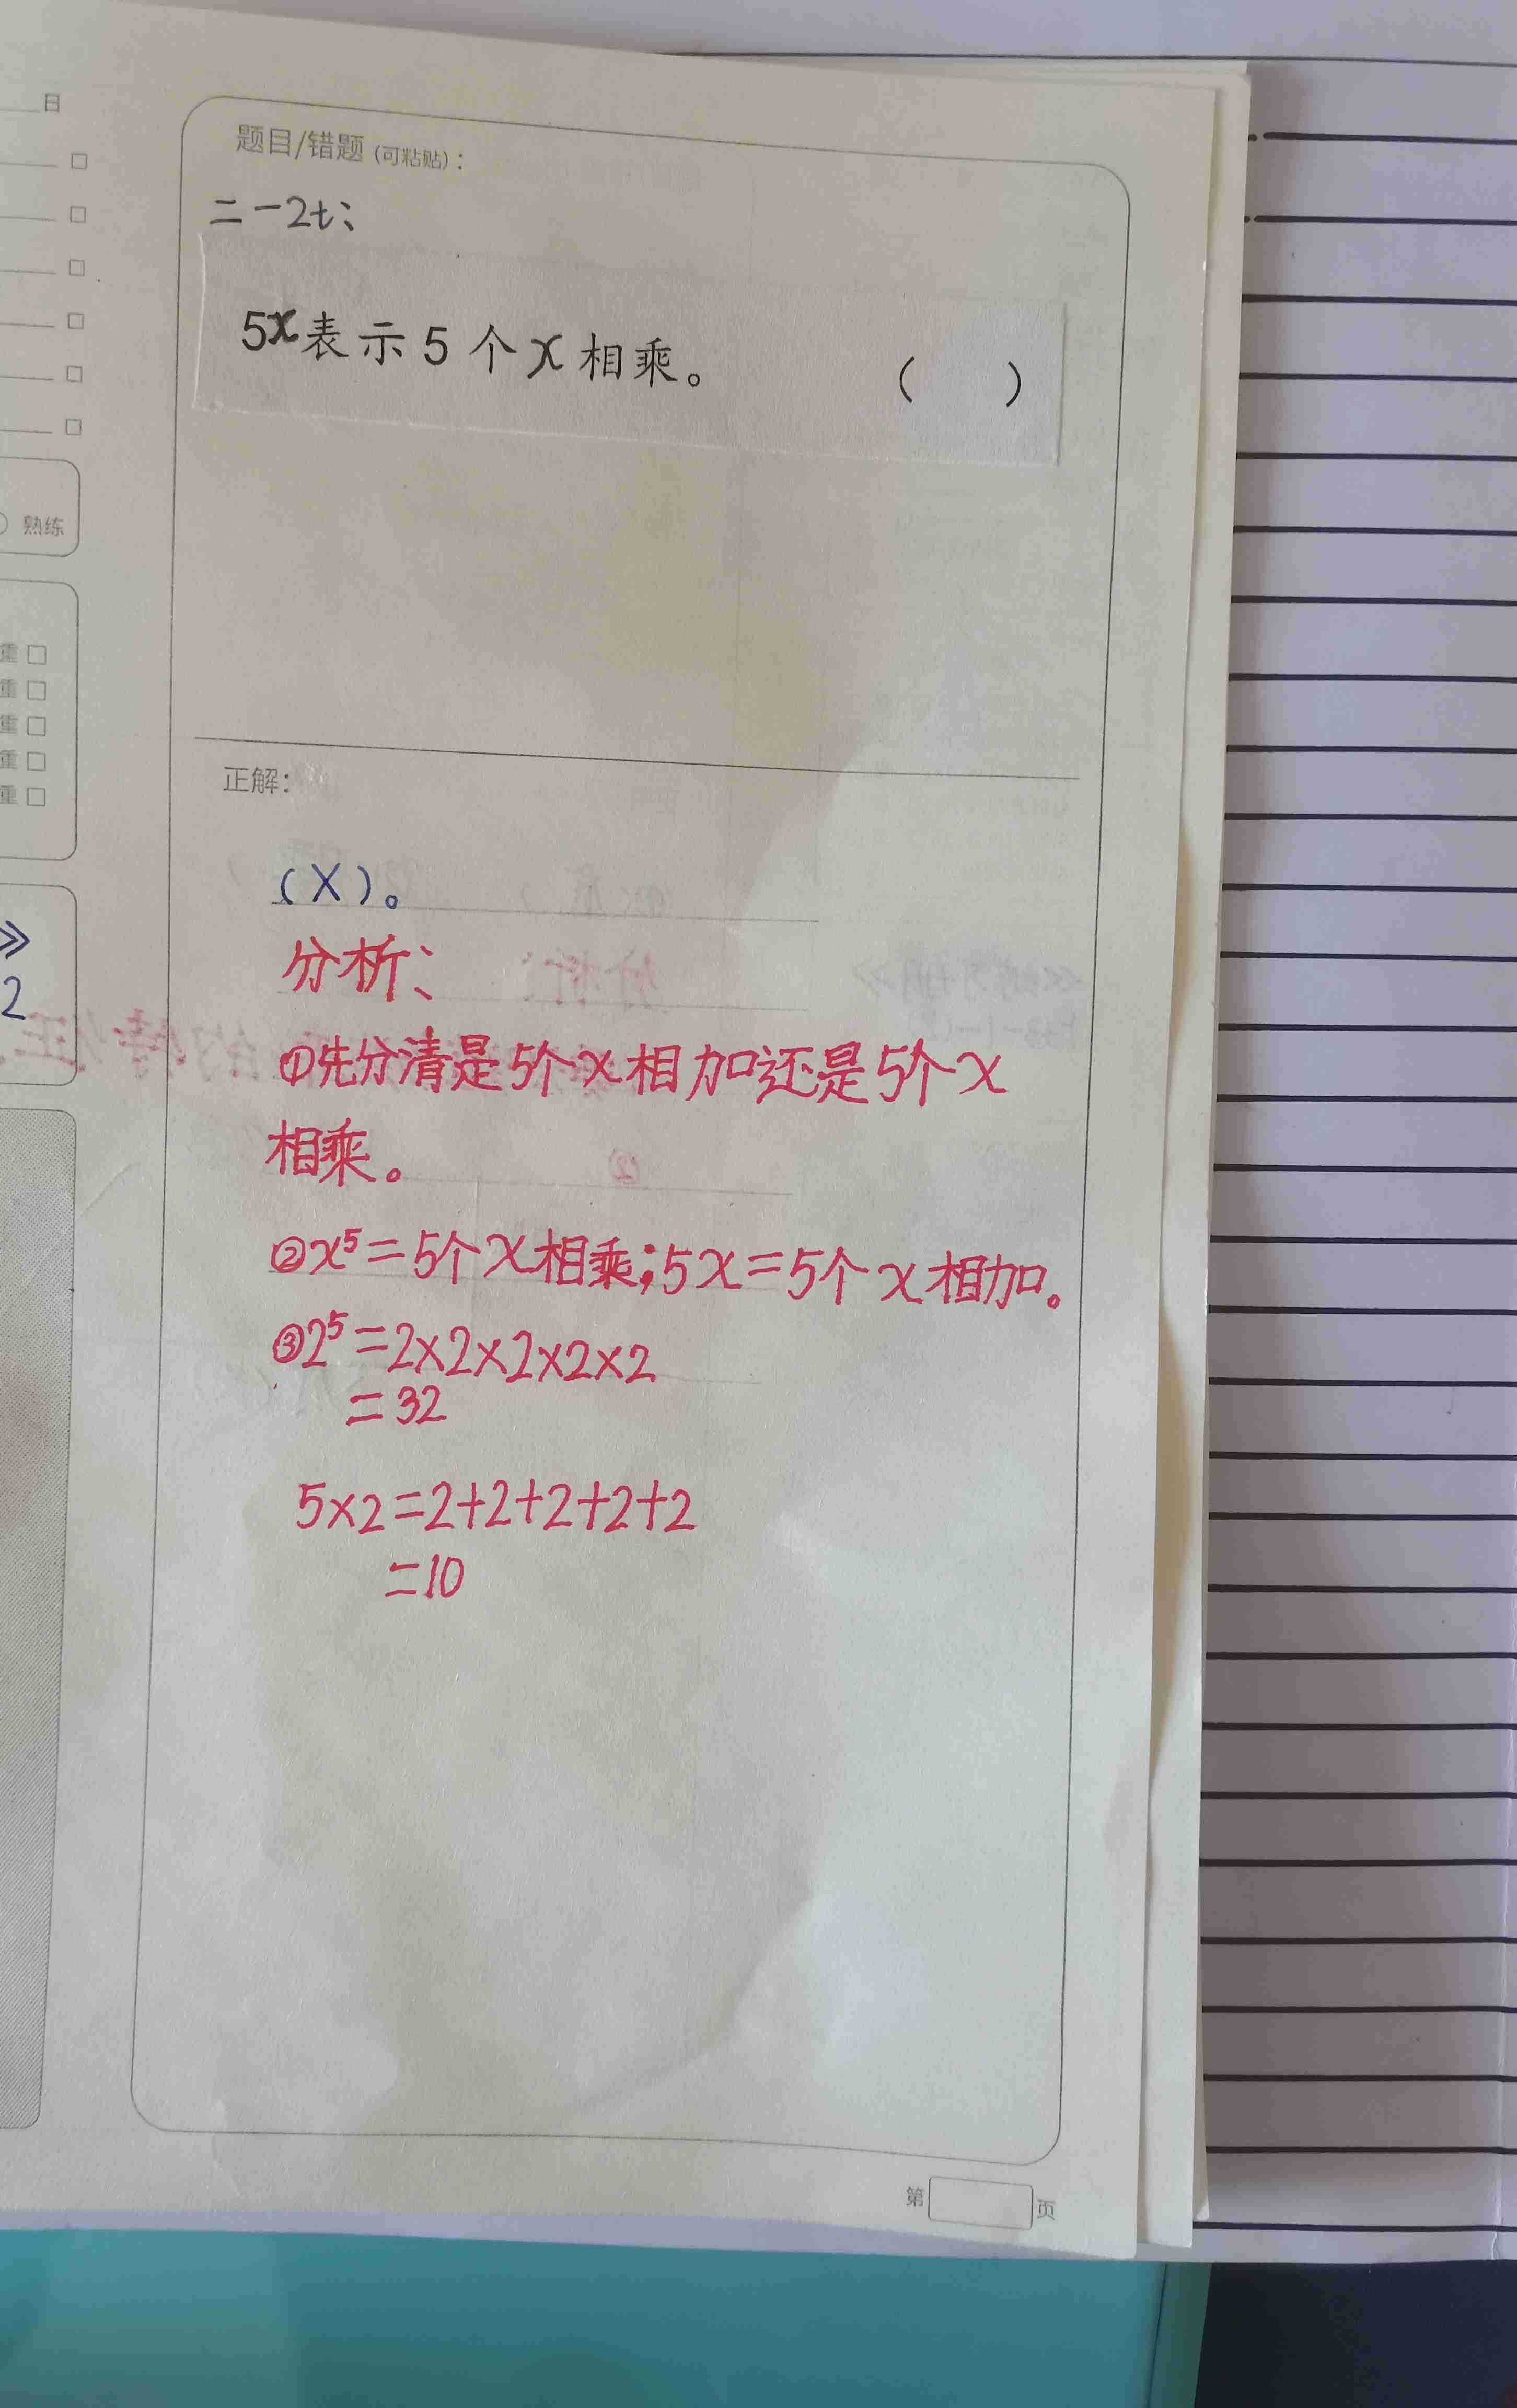 日
熟练
重
重
重
重
重
》
2
题目/错题 (可粘贴)：
二-2t、
5x表示5个x相乘。 （ ）
正解：
（X）。
分析、
①先分清是5个x相加还是5个x
相乘。
②x⁵=5个x相乘；5x=5个x相加。
③2⁵=2×2×2×2×2
=32
5×2=2+2+2+2+2
=10
第 页